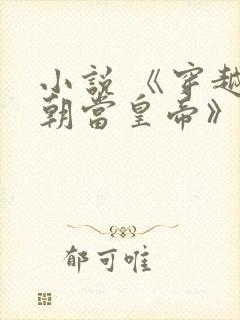 小説《穿越
朝當皇帝》
郁可唯